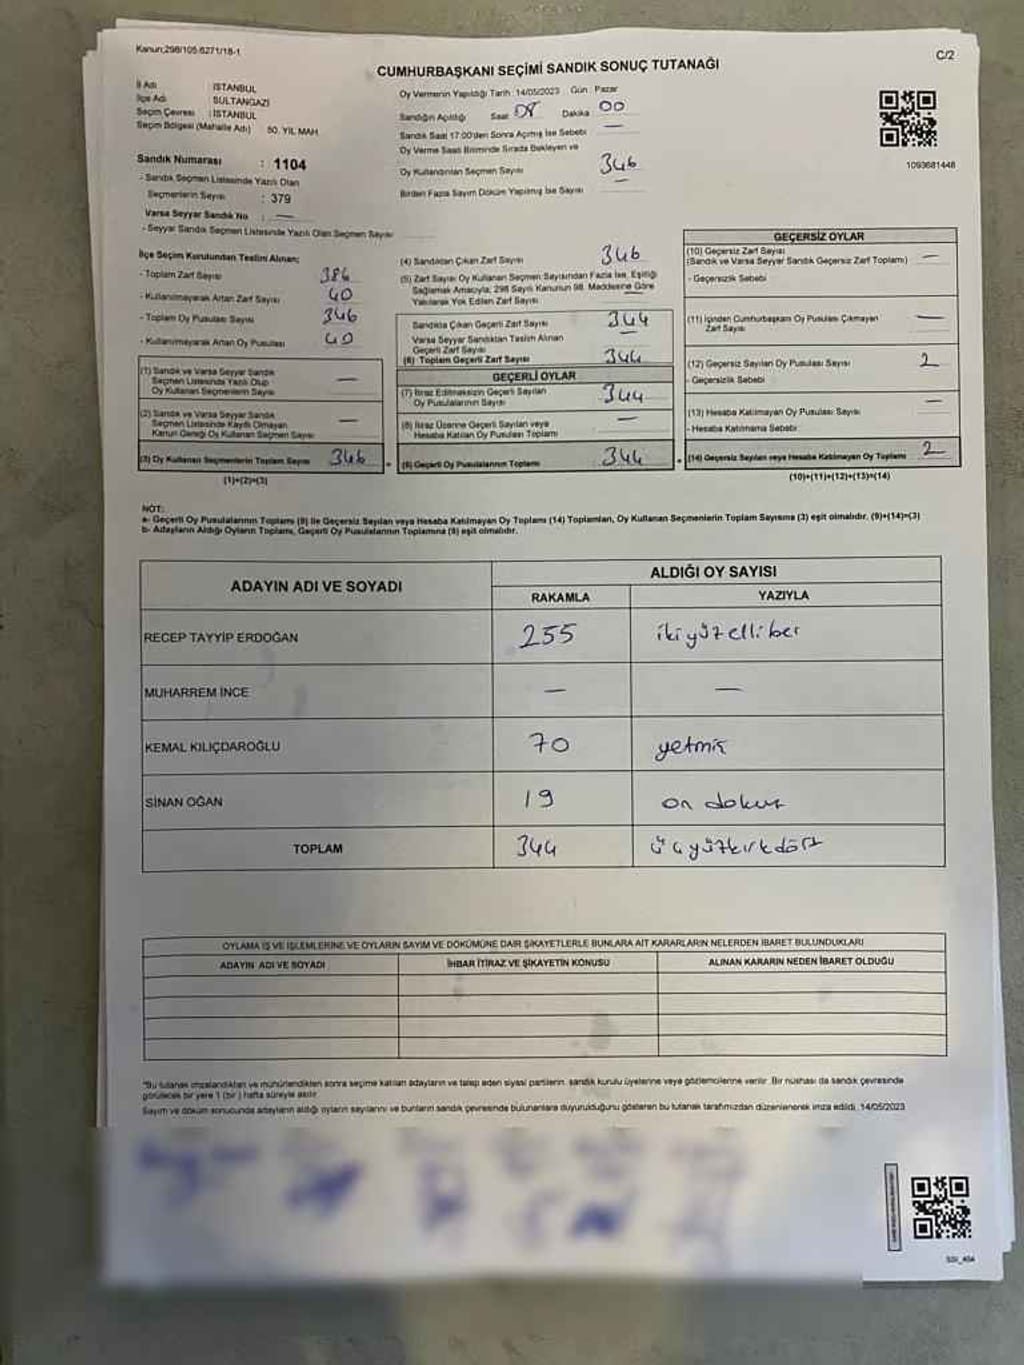 Kanun:298/105-6271/18-1
C/2
CUMHURBAŞKANI SEÇİMİ SANDIK SONUÇ TUTANAĞI
İl Adı : İSTANBUL
İlçe Adı : SULTANGAZİ
Seçim Çevresi : İSTANBUL
Seçim Bölgesi (Mahalle Adı) 50. YIL MAH.
Sandık Numarası : 1104
- Sandık Seçmen Listesinde Yazılı Olan
Seçmenlerin Sayısı : 379
Varsa Seyyar Sandık No : —
- Seyyar Sandık Seçmen Listesinde Yazılı Olan Seçmen Sayısı
Oy Vermenin Yapıldığı Tarih :14/05/2023 Gün : Pazar
Sandığın Açıldığı Saat 08 Dakika 00
Sandık Saat 17:00'den Sonra Açılmış İse Sebebi —
Oy Verme Saati Bitiminde Sırada Bekleyen ve
Oy Kullandırılan Seçmen Sayısı 346
Birden Fazla Sayım Döküm Yapılmış İse Sayısı —
1093681448
İlçe Seçim Kurulundan Teslim Alınan;
- Toplam Zarf Sayısı 386
- Kullanılmayarak Artan Zarf Sayısı 40
- Toplam Oy Pusulası Sayısı 346
- Kullanılmayarak Artan Oy Pusulası 40
(1) Sandık ve Varsa Seyyar Sandık
Seçmen Listesinde Yazılı Olup
Oy Kullanan Seçmenlerin Sayısı —
(2) Sandık ve Varsa Seyyar Sandık
Seçmen Listesinde Kayıtlı Olmayan
Kanun Gereği Oy Kullanan Seçmen Sayısı —
(3) Oy Kullanan Seçmenlerin Toplam Sayısı 346
(1)+(2)=(3)
(4) Sandıktan Çıkan Zarf Sayısı 346
(5) Zarf Sayısı Oy Kullanan Seçmen Sayısından Fazla İse, Eşitliği
Sağlamak Amacıyla; 298 Sayılı Kanunun 98. Maddesine Göre
Yakılarak Yok Edilen Zarf Sayısı —
Sandıkta Çıkan Geçerli Zarf Sayısı 344
Varsa Seyyar Sandıktan Teslim Alınan
Geçerli Zarf Sayısı —
(6) Toplam Geçerli Zarf Sayısı 344
GEÇERLİ OYLAR
(7) İtiraz Edilmeksizin Geçerli Sayılan
Oy Pusulalarının Sayısı 344
(8) İtiraz Üzerine Geçerli Sayılan veya
Hesaba Katılan Oy Pusulası Toplamı —
(9) Geçerli Oy Pusulalarının Toplamı 344
GEÇERSİZ OYLAR
(10) Geçersiz Zarf Sayısı
(Sandık ve Varsa Seyyar Sandık Geçersiz Zarf Toplamı) —
- Geçersizlik Sebebi
(11) İçinden Cumhurbaşkanı Oy Pusulası Çıkmayan
Zarf Sayısı —
(12) Geçersiz Sayılan Oy Pusulası Sayısı 2
- Geçersizlik Sebebi
(13) Hesaba Katılmayan Oy Pusulası Sayısı —
- Hesaba Katılmama Sebebi
(14) Geçersiz Sayılan veya Hesaba Katılmayan Oy Toplamı 2
(10)+(11)+(12)+(13)=(14)
NOT:
a- Geçerli Oy Pusulalarının Toplamı (9) ile Geçersiz Sayılan veya Hesaba Katılmayan Oy Toplamı (14) Toplamları, Oy Kullanan Seçmenlerin Toplam Sayısına (3) eşit olmalıdır. (9)+(14)=(3)
b- Adayların Aldığı Oyların Toplamı, Geçerli Oy Pusulalarının Toplamına (9) eşit olmalıdır.
ADAYIN ADI VE SOYADI
ALDIĞI OY SAYISI
RAKAMLA YAZIYLA
RECEP TAYYİP ERDOĞAN 255 ikiyüzellibeş
MUHARREM İNCE — —
KEMAL KILIÇDAROĞLU 70 yetmiş
SİNAN OĞAN 19 on dokuz
TOPLAM 344 üçyüzkırkdört
OYLAMA İŞ VE İŞLEMLERİNE VE OYLARIN SAYIM VE DÖKÜMÜNE DAİR ŞİKAYETLERLE BUNLARA AİT KARARLARIN NELERDEN İBARET BULUNDUKLARI
ADAYIN ADI VE SOYADI İHBAR İTİRAZ VE ŞİKAYETİN KONUSU ALINAN KARARIN NEDEN İBARET OLDUĞU
*Bu tutanak imzalandıktan ve mühürlendikten sonra seçime katılan adayların ve talep eden siyasi partilerin, sandık kurulu üyelerine veya gözlemcilerine verilir. Bir nüshası da sandık çevresinde
görülecek bir yere 1 (bir) hafta süreyle asılır.
Sayım ve döküm sonucunda adayların aldığı oyların sayılarını ve bunların sandık çevresinde bulunanlara duyurulduğunu gösteren bu tutanak tarafımızdan düzenlenerek imza edildi. 14/05/2023